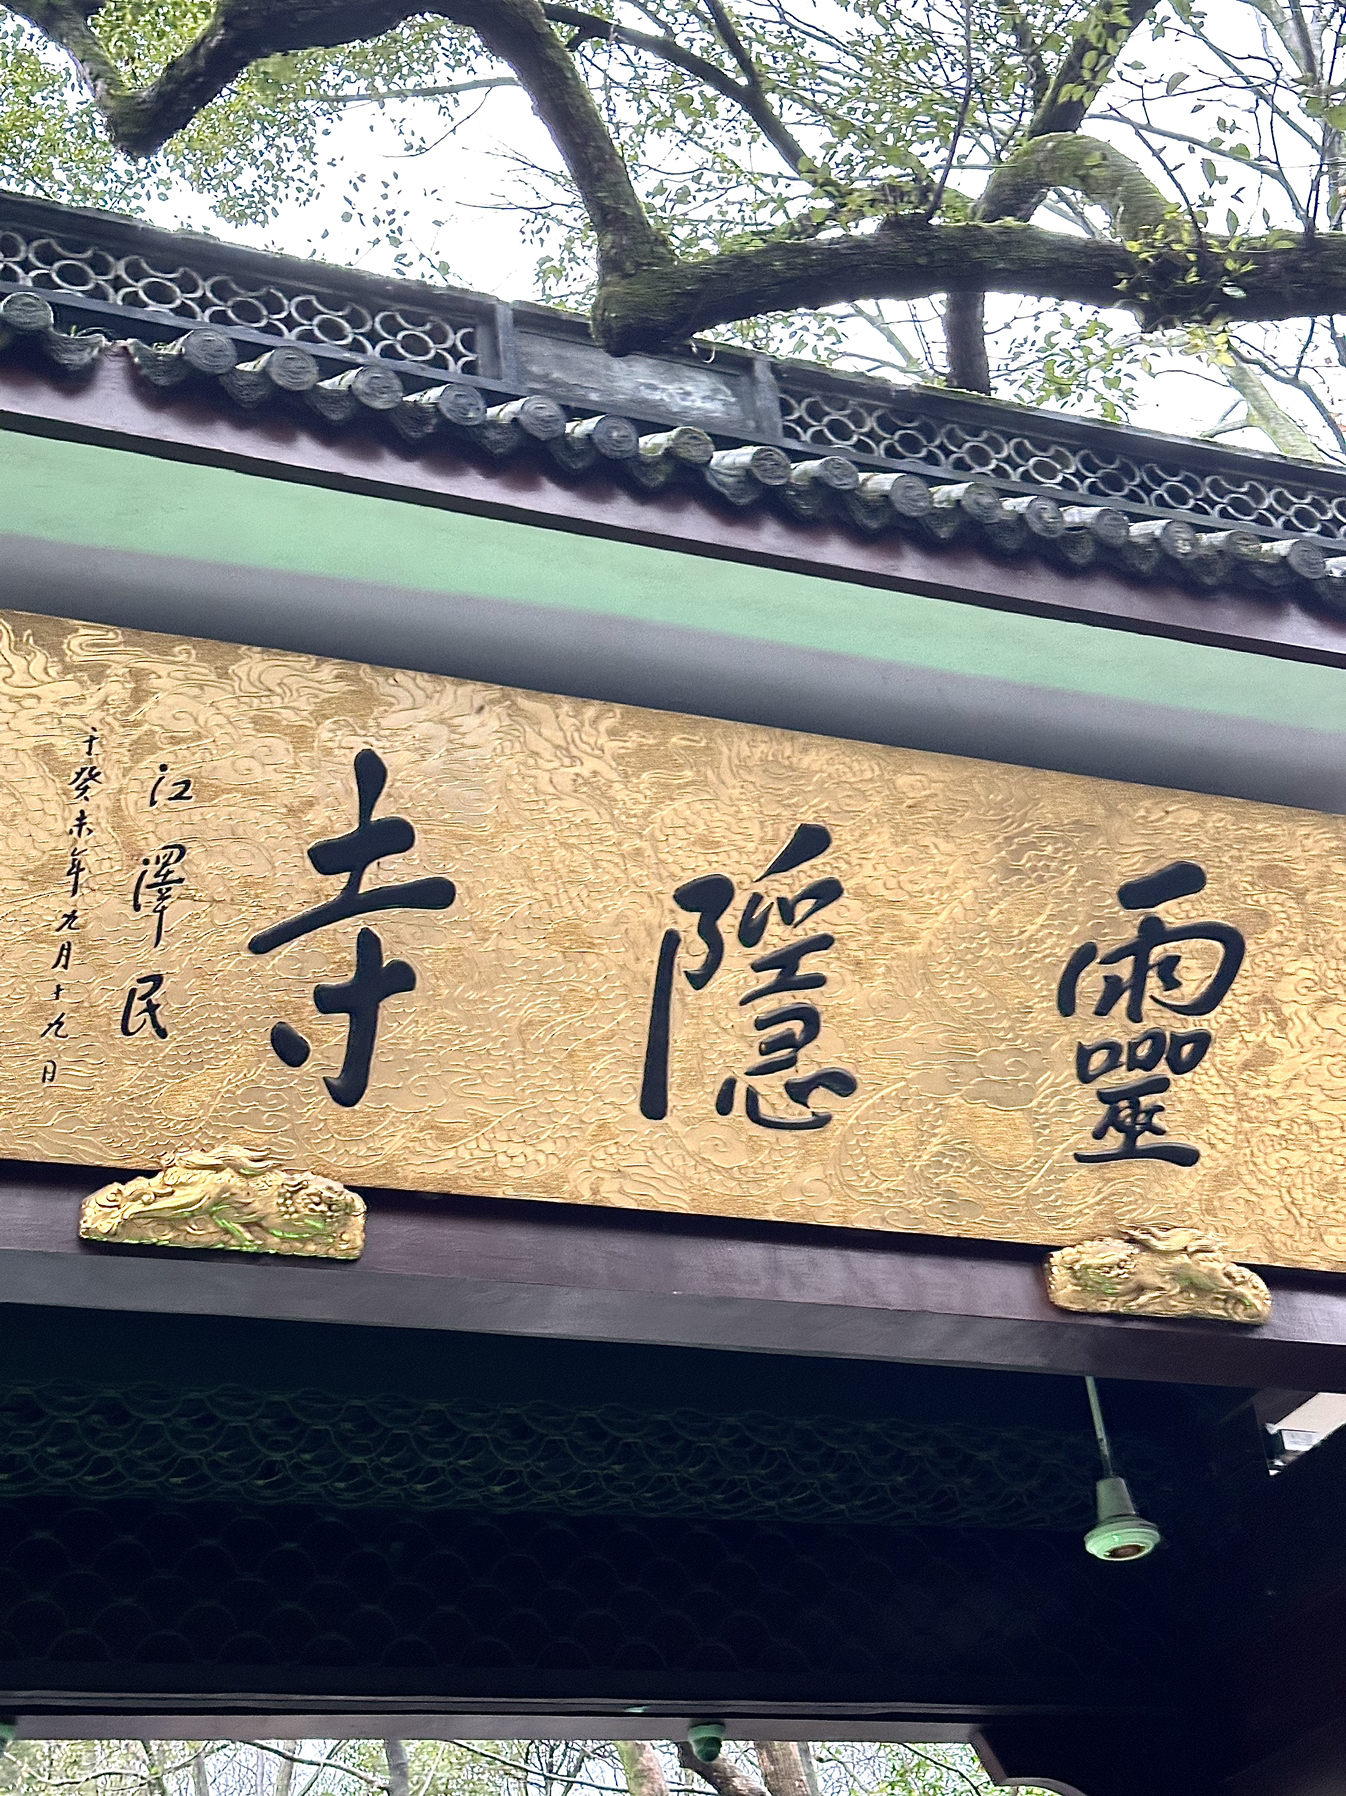 靈隱寺
江澤民
于癸未年九月十九日